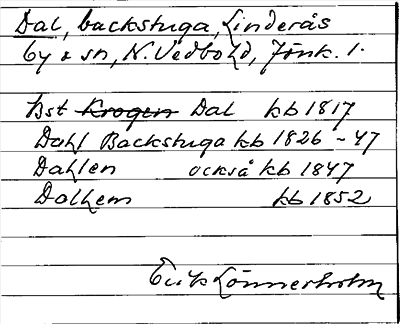 Dal, backstuga, Linderås
by & sn, N. Vedbo hd, Jönk. l.
bst Krogen Dal kb 1817
Dahl Backstuga kb 1826-47
Dahlen också kb 1847
Dalhem kb 1852
Erik Lönnerholm